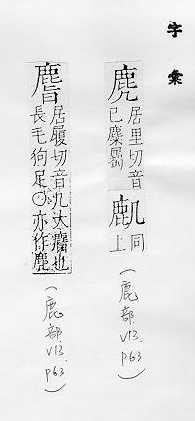 字彙
麂 居里切音
己麋屬
同
上
(鹿部, V13, P63)
居履切音几大也
長毛狗足 亦作麂
(鹿部, V13, P63)